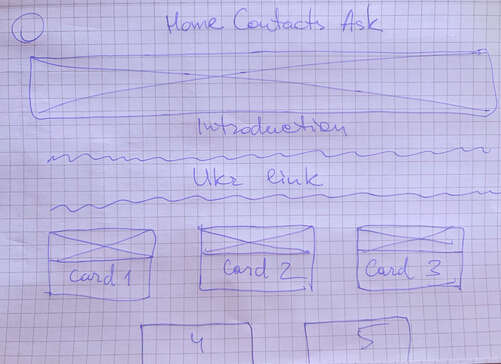 Home Contacts Ask
Introduction
Ukr link
Card 1 Card 2 Card 3
4 5